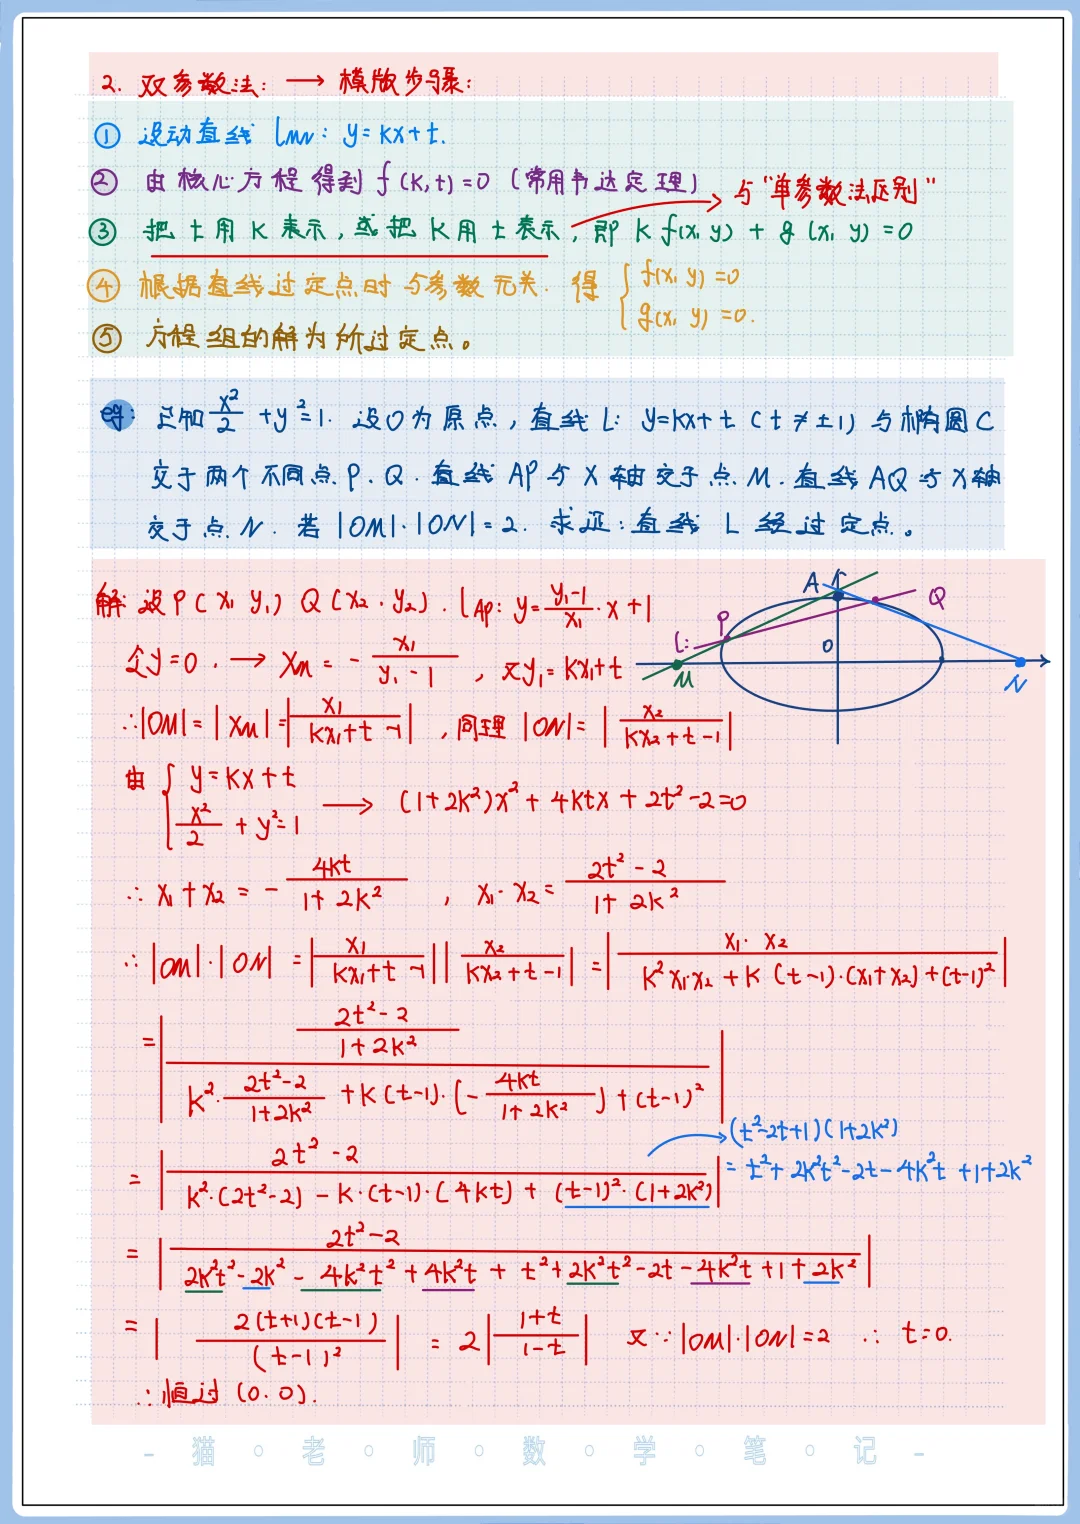 2. 双参数法: → 模版步骤:
① 设动直线 lmn: y=kx+t.
② 由核心方程得到 f(k,t)=0 (常用韦达定理)
与"单参数法区别"
③ 把 t 用 k 表示, 或把 k 用 t 表示, 即 k f(x, y) + g (x, y) =0
④ 根据直线过定点时与参数无关. 得 { f(x, y) =0
g(x, y) =0.
⑤ 方程组的解为所过定点。
eg: 已知 x²/2 + y²=1. 设O为原点, 直线 L: y=kx+t (t≠±1) 与椭圆C
交于两个不同点P、Q. 直线 AP 与 X 轴交于点M. 直线 AQ 与 X轴
交于点N. 若 |OM|·|ON|=2. 求证: 直线 L 经过定点。
解: 设P(x₁ y₁) Q(x₂·y₂). lAP: y= (y₁-1)/x₁ · x +1
令y=0, → xM= - x₁/(y₁-1), 又y₁=kx₁+t
A
P
Q
L:
O
M
N
∴|OM|=|xM|=|x₁/(kx₁+t-1)|, 同理 |ON|= |x₂/(kx₂+t-1)|
由 { y=kx+t
x²/2 + y²=1 → (1+2k²)x²+4ktx+2t²-2=0
∴ x₁+x₂= - 4kt/(1+2k²), x₁·x₂= (2t²-2)/(1+2k²)
∴ |OM|·|ON| = |x₁/(kx₁+t-1)| |x₂/(kx₂+t-1)| = |x₁·x₂/(k²x₁·x₂+k(t-1)·(x₁+x₂)+(t-1)²)|
= |((2t²-2)/(1+2k²))/(k²·(2t²-2)/(1+2k²)+k(t-1)·(-4kt/(1+2k²))+(t-1)²)|
(t²-2t+1)(1+2k²)
= |(2t²-2)/(k²·(2t²-2)-k·(t-1)·(4kt)+(t-1)²·(1+2k²))|
= t²+2k²t²-2t-4k²t+1+2k²
= |(2t²-2)/(2k²t²-2k²-4k²t²+4k²t+t²+2k²t²-2t-4k²t+1+2k²)|
= |2(t+1)(t-1)/(t-1)²| = 2|(1+t)/(1-t)| 又∵|OM|·|ON|=2 ∴ t=0.
∴恒过(0.0).
- 猫 · 老 · 师 · 数 · 学 · 笔 · 记 -